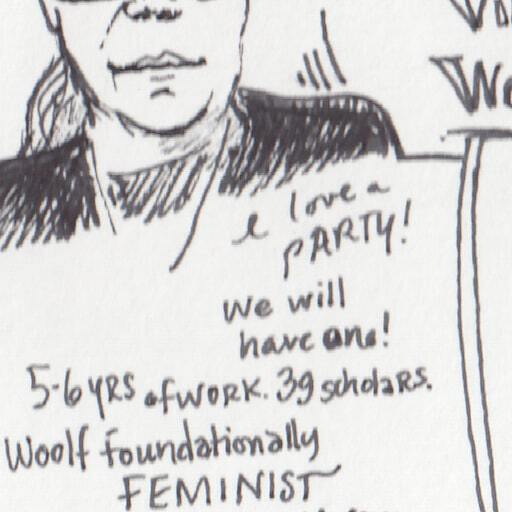 Vi
Wo
I love a
PARTY!
We will
have one!
5-6 YRS of WORK. 39 scholars.
Woolf foundationally
FEMINIST